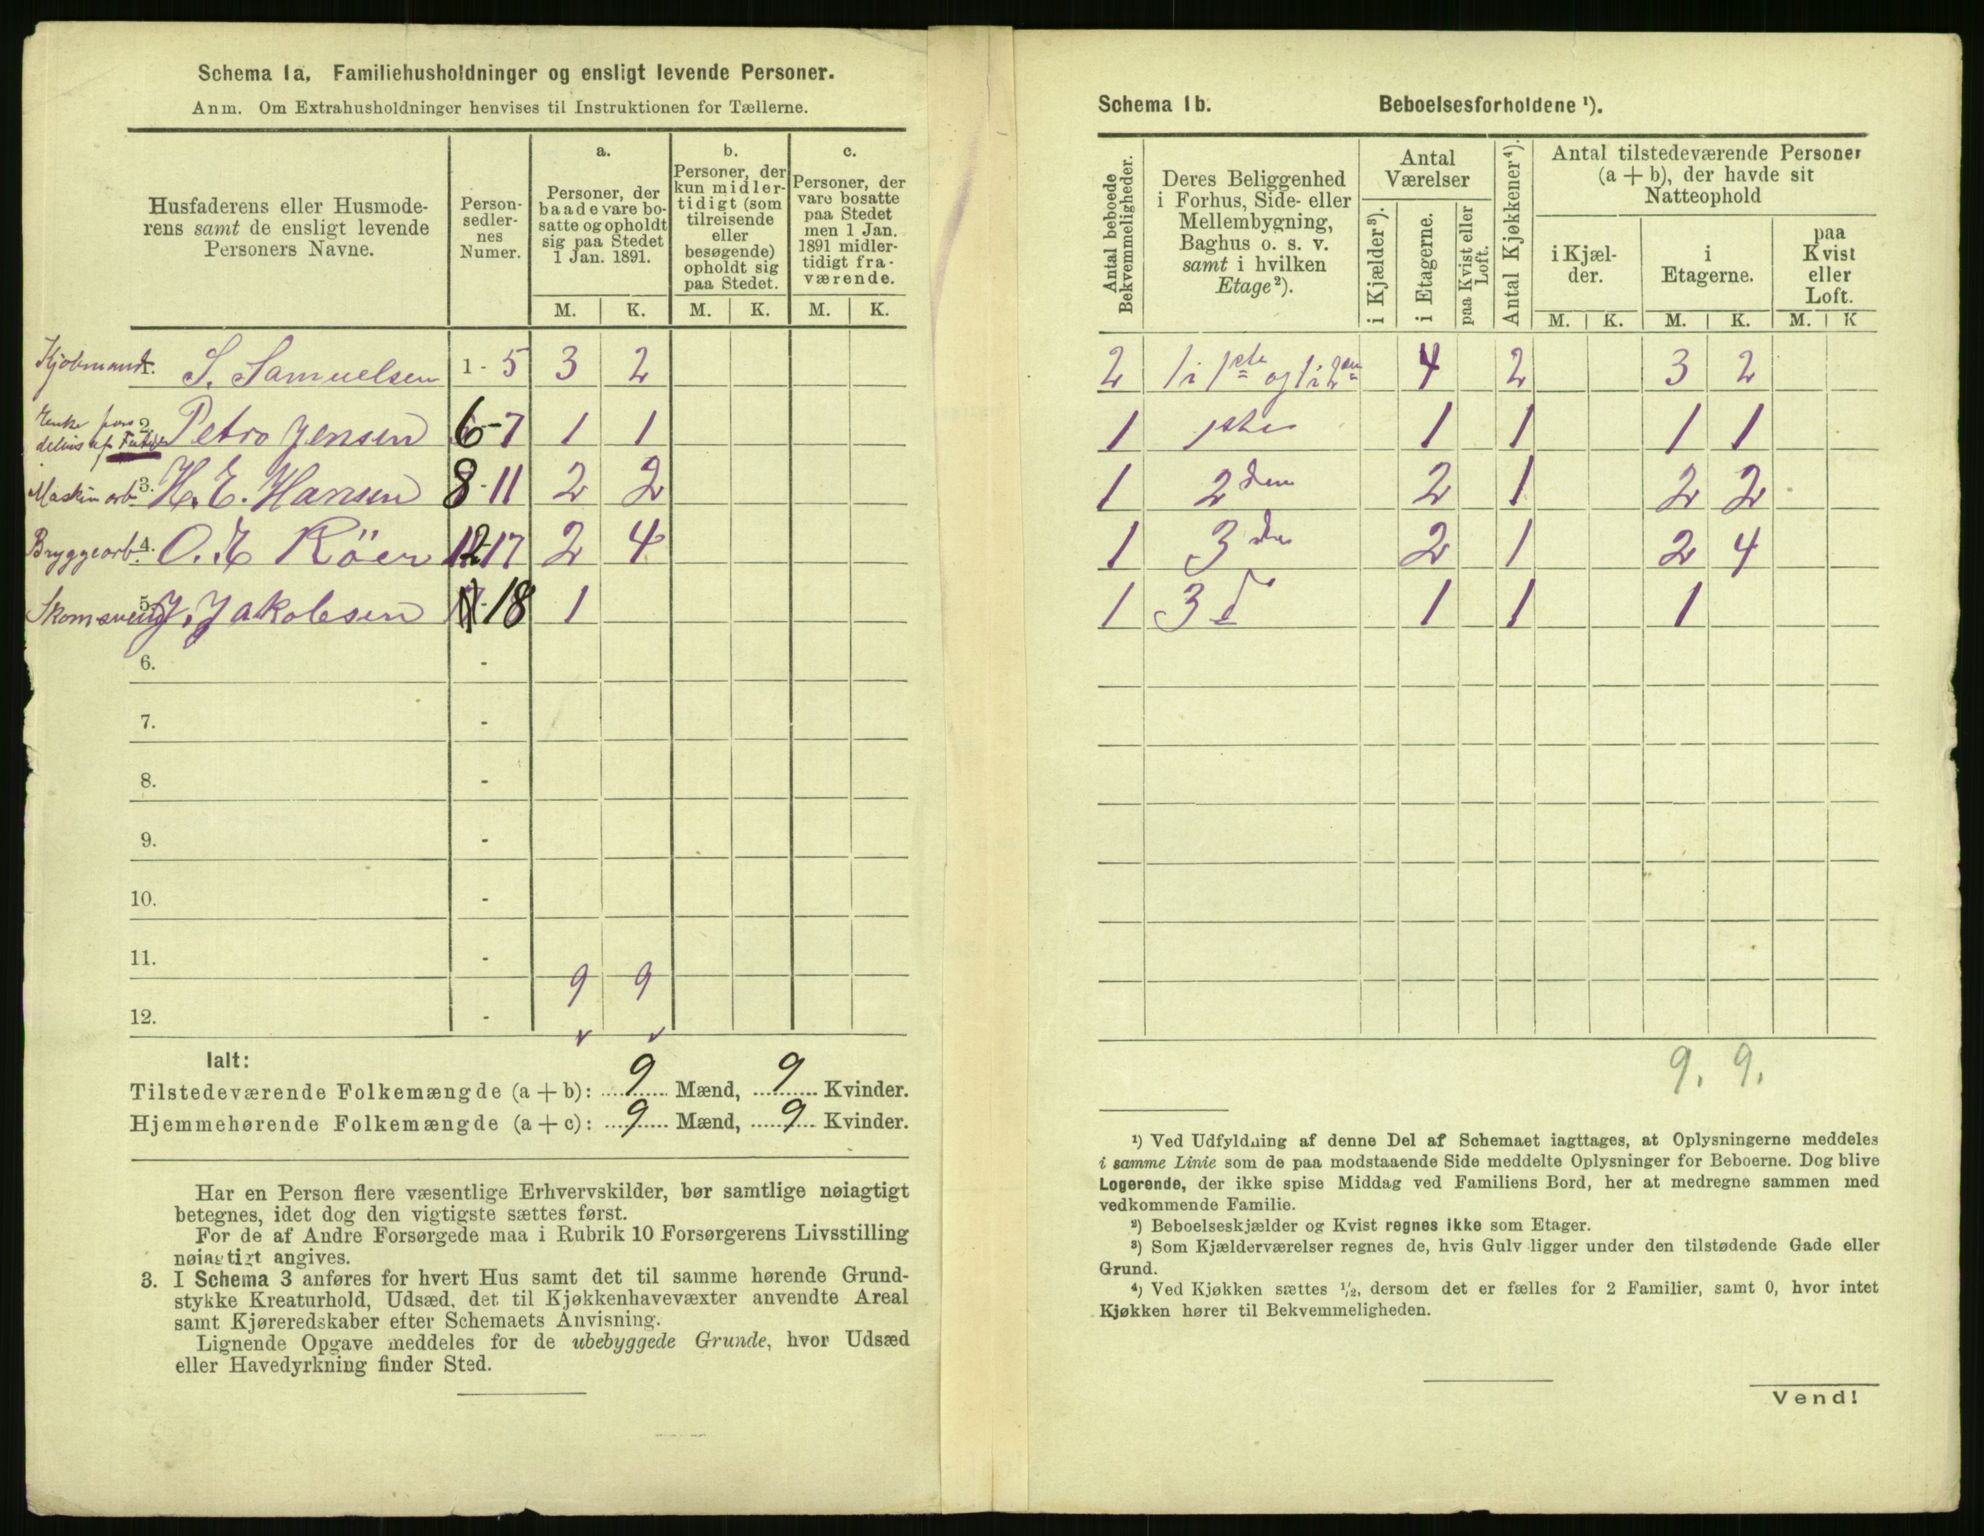 Schema 1a. Familiehusholdninger og ensligt levende Personer.
Anm. Om Extrahusholdninger henvises til Instruktionen for Tællerne.
Husfaderens eller Husmode-
rens samt de ensligt levende
Personers Navne.
Person-
sedler-
nes
Numer.
a.
Personer, der
baade vare bo-
satte og opholdt
sig paa Stedet
1 Jan. 1891.
b.
Personer, der
kun midler-
tidigt (som
tilreisende
eller
besøgende)
opholdt sig
paa Stedet.
c.
Personer, der
vare bosatte
paa Stedet
men 1 Jan.
1891 midler-
tidigt fra-
værende.
M. K. M. K. M. K.
Kjøbmand 1. S. Samuelsen 1 - 5 3 2
Enke 2. Petro Jensen 6-7 1 1
Maskinarb 3. H. E. Hansen 8-11 2 2
Bryggearb. 4. O. E Röer 12-17 2 4
Skomsvend 5. J. Jakobsen 18 1
6. -
7. -
8. -
9. -
10. -
11. -
9 9
12. -
Ialt:
Tilstedeværende Folkemængde (a + b): 9 Mænd, 9 Kvinder.
Hjemmehørende Folkemængde (a + c): 9 Mænd, 9 Kvinder.
Har en Person flere væsentlige Erhvervskilder, bør samtlige nøiagtigt
betegnes, idet dog den vigtigste sættes først.
For de af Andre Forsørgede maa i Rubrik 10 Forsørgerens Livsstilling
nøiagtigt angives.
3. I Schema 3 anføres for hvert Hus samt det til samme hørende Grund-
stykke Kreaturhold, Udsæd, det til Kjøkkenhavevæxter anvendte Areal
samt Kjøreredskaber efter Schemaets Anvisning.
Lignende Opgave meddeles for de ubebyggede Grunde, hvor Udsæd
eller Havedyrkning finder Sted.
Schema 1b. Beboelsesforholdene ¹).
Antal beboede
Bekvemmeligheder.
Deres Beliggenhed
i Forhus, Side- eller
Mellembygning,
Baghus o. s. v.
samt i hvilken
Etage ²).
Antal
Værelser
i Kjælder ³).
i Etagerne.
paa Kvist eller
Loft.
Antal Kjøkkener ⁴).
Antal tilstedeværende Personer
(a + b), der havde sit
Natteophold
i Kjæl-
der.
i
Etagerne.
paa
Kvist
eller
Loft.
M. K. M. K. M. K
2 1 i 1ste og 1 i 2en 4 2 3 2
1 1ste 1 1 1 1
1 2den 2 1 2 2
1 3die 2 1 2 4
1 3 d 1 1 1
9. 9.
¹) Ved Udfyldning af denne Del af Schemaet iagttages, at Oplysningerne meddeles
i samme Linie som de paa modstaaende Side meddelte Oplysninger for Beboerne. Dog blive
Logerende, der ikke spise Middag ved Familiens Bord, her at medregne sammen med
vedkommende Familie.
²) Beboelseskjælder og Kvist regnes ikke som Etager.
³) Som Kjælderværelser regnes de, hvis Gulv ligger under den tilstødende Gade eller
Grund.
⁴) Ved Kjøkken sættes ½, dersom det er fælles for 2 Familier, samt 0, hvor intet
Kjøkken hører til Bekvemmeligheden.
Vend!